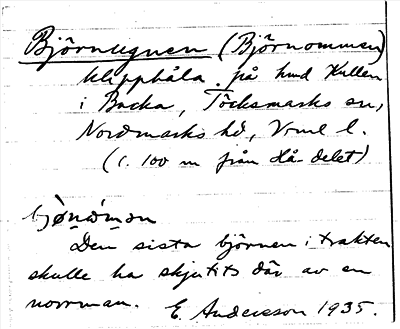 Björnugnen (Björnommen)
klipphåla på hmd Kullen
i Backa, Töcksmarks sn,
Nordmarks hd, Vrml l.
(c. 100 m från lå-delet)
Den sista björnen i trakten
skulle ha skjutits där av en
norrman. E. Andersson 1935.